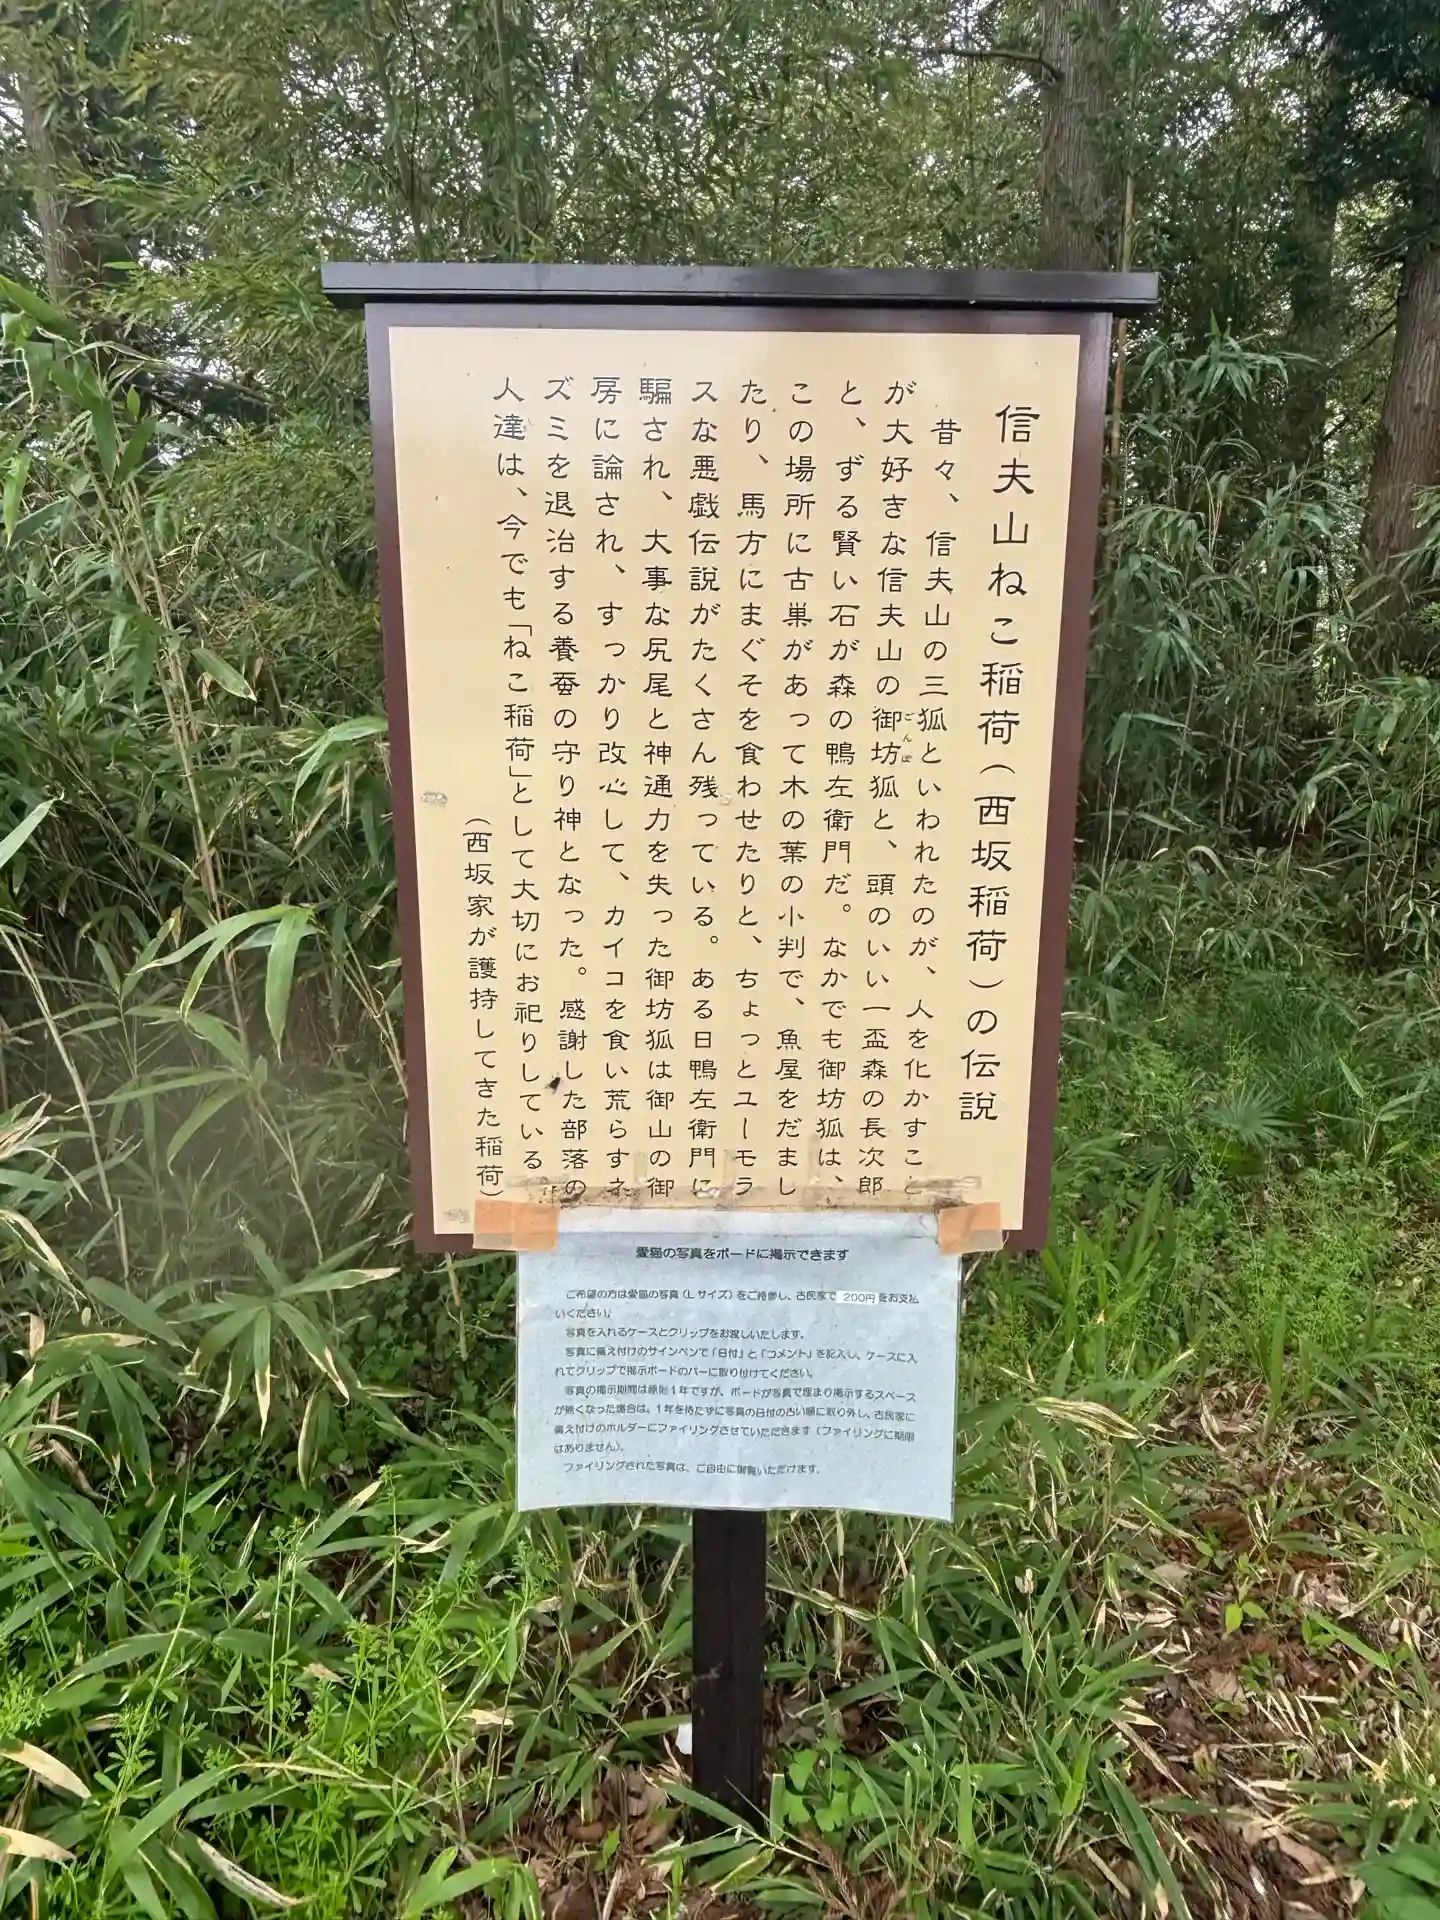 信夫山ねこ稲荷(西坂稲荷)の伝説
昔々、信夫山の三狐といわれたのが、人を化かすこと
が大好きな信夫山の御坊狐と、頭のいい一盃森の長次郎
ごんぼ
と、ずる賢い石が森の鴨左衛門だ。なかでも御坊狐は、
この場所に古巣があって木の葉の小判で、魚屋をだまし
たり、馬方にまぐそを食わせたりと、ちょっとユーモラ
スな悪戯伝説がたくさん残っている。ある日鴨左衛門に
騙され、大事な尻尾と神通力を失った御坊狐は御山の御
房に論され、すっかり改心して、カイコを食い荒らすネ
ズミを退治する養蚕の守り神となった。感謝した部落の
人達は、今でも「ねこ稲荷」として大切にお祀りしている
(西坂家が護持してきた稲荷)
愛猫の写真をボードに掲示できます
ご希望の方は愛猫の写真(Lサイズ)をご持参し、古民家で 200円 をお支払
いください。
写真を入れるケースとクリップをお渡しいたします。
写真に備え付けのサインペンで「日付」と「コメント」を記入し、ケースに入
れてクリップで掲示ボードのバーに取り付けてください。
写真の掲示期間は原則1年ですが、ボードが写真で埋まり掲示するスペース
が無くなった場合は、1年を待たずに写真の日付の古い順に取り外し、古民家に
備え付けのホルダーにファイリングさせていただきます(ファイリングに期限
はありません)。
ファイリングされた写真は、ご自由に御覧いただけます。